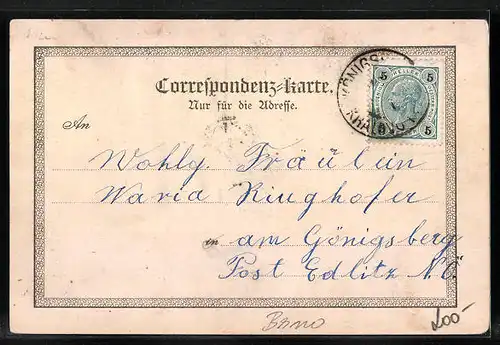 KÖNIGS
5 HELLER 5
5 5
Correspondenz-Karte.
Nur für die Adresse.
An
Wohlg. Fräulein
Maria Ringhofer
in am Gönigsberg
Post Edlitz N.Ö.